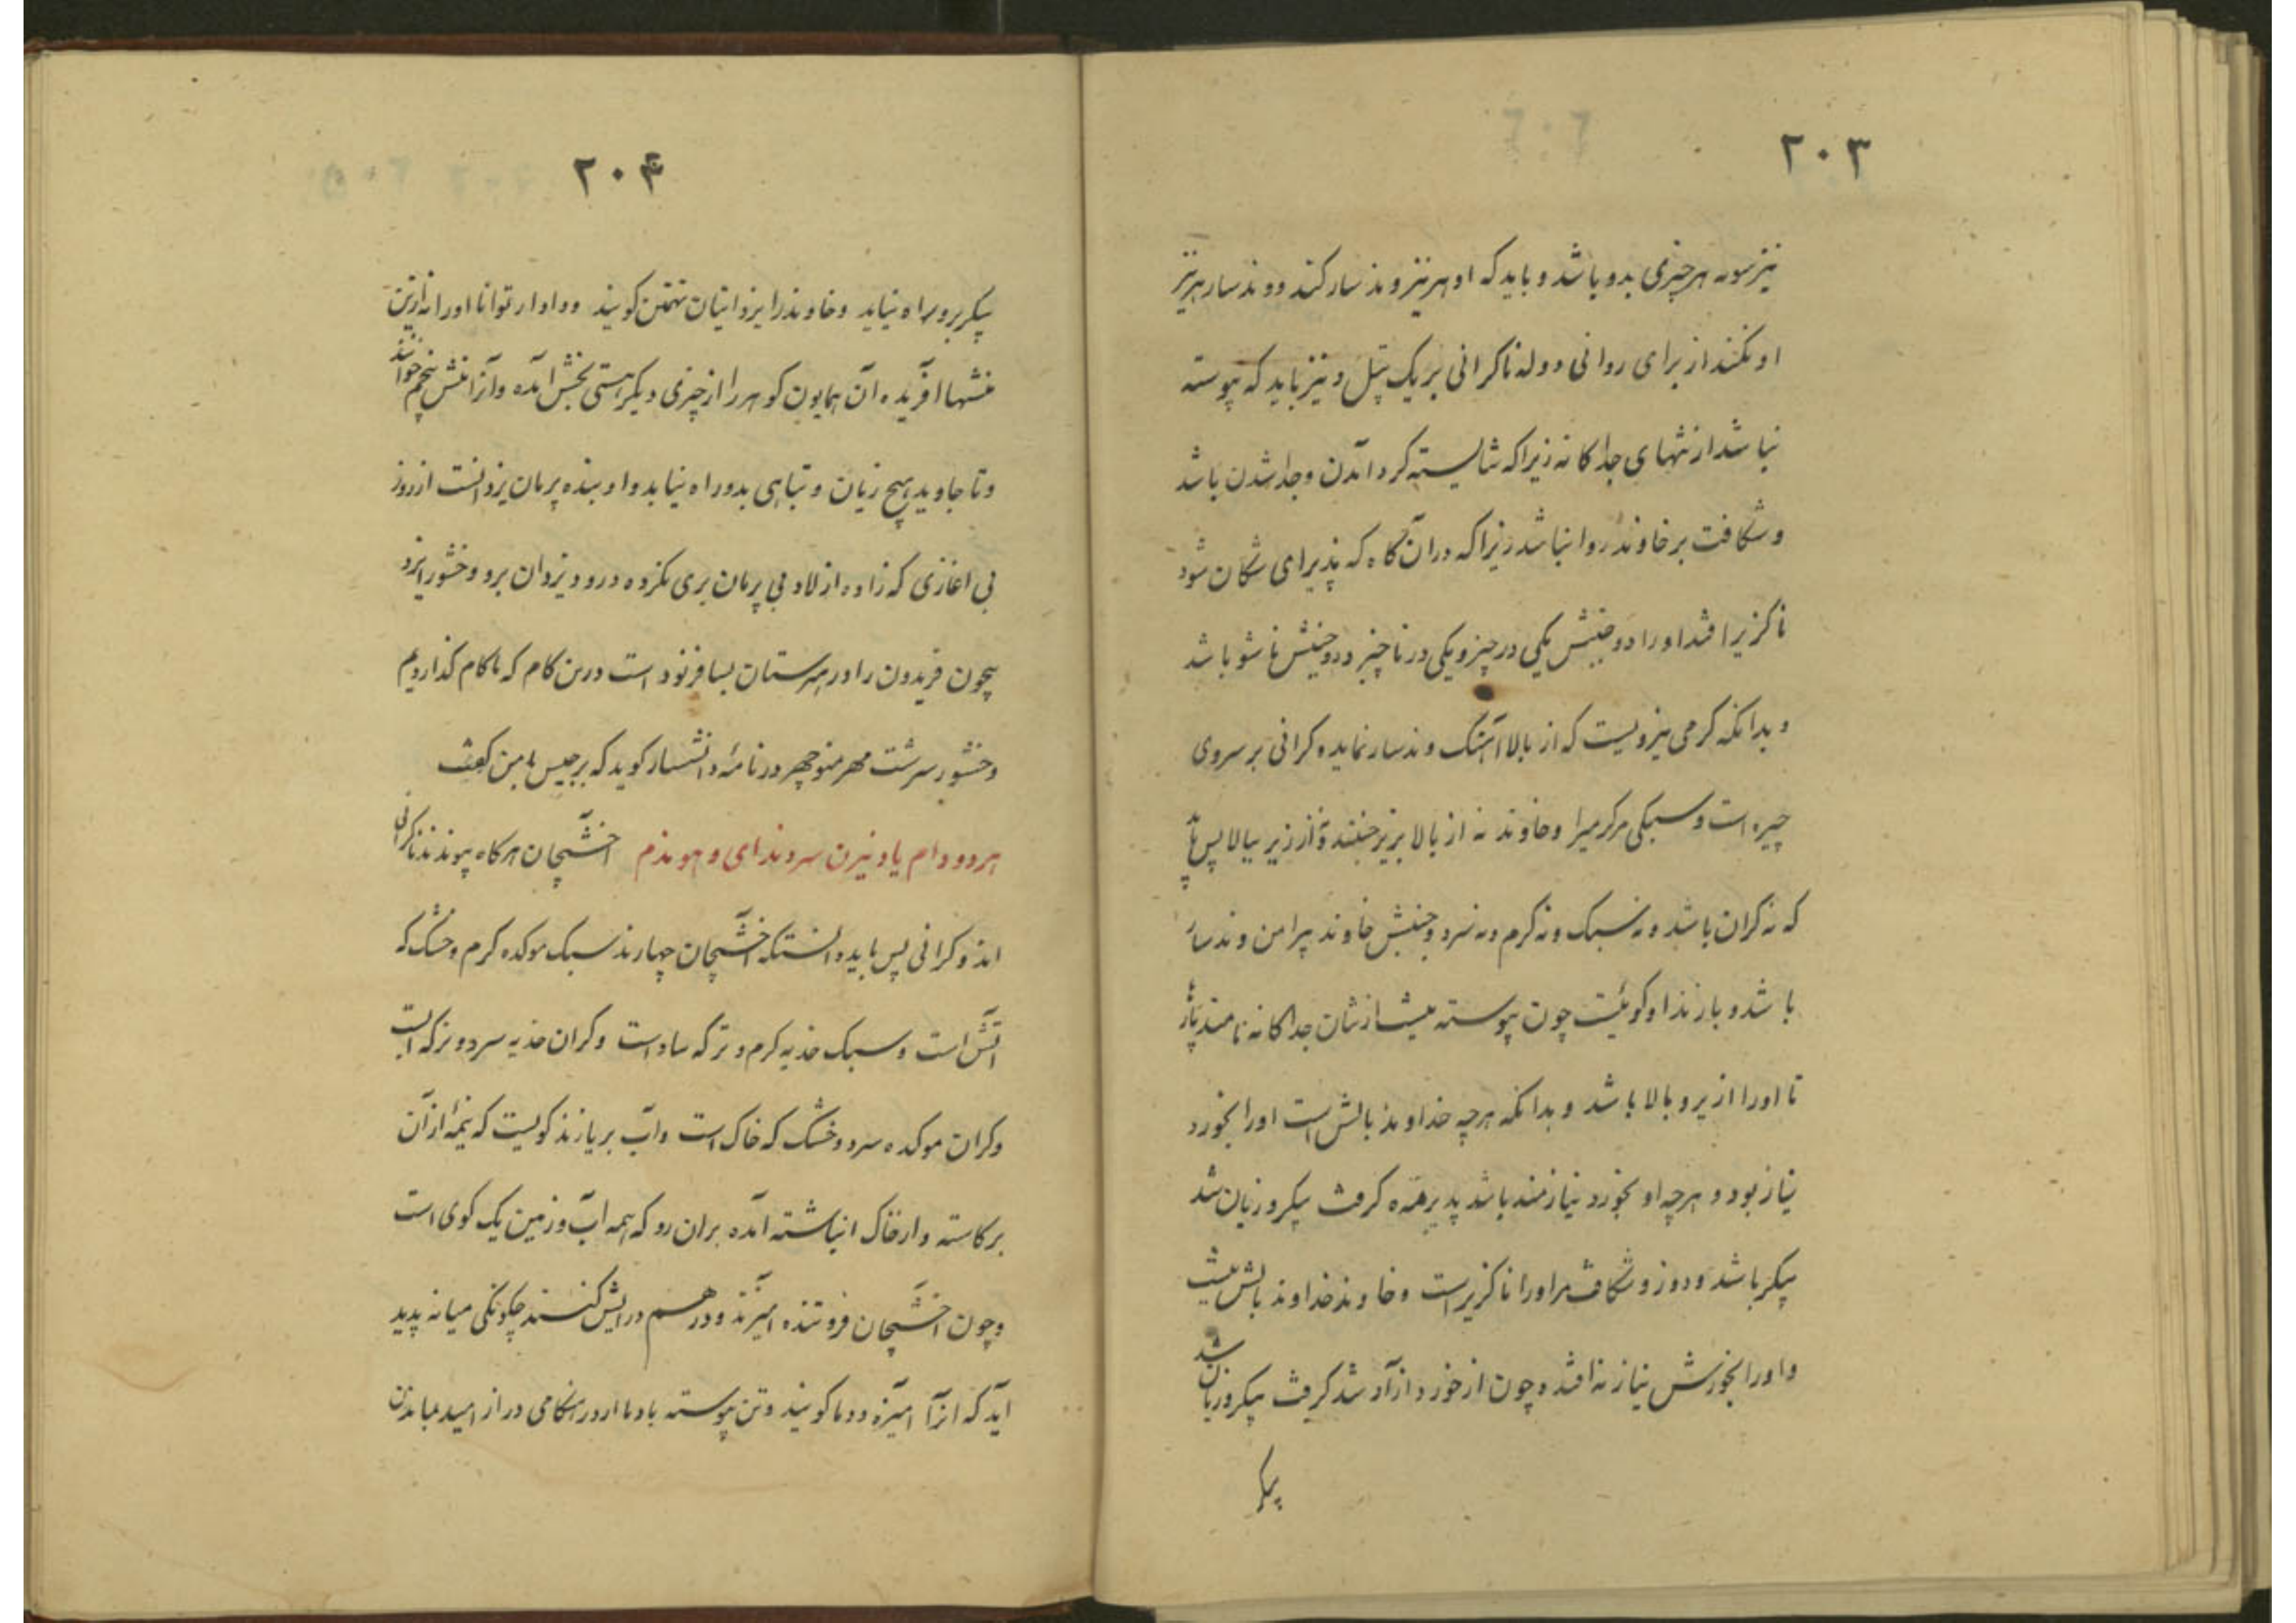 ۲۰۳
هر چیزی بدو باشد و باید که او هر نیز وندسار کند و وندسار هر نیز
او نکند از برای روانی و وله ناکرانی بر یک تپل و نیز باید که پیوسته
نباشد از تنهای جداکانه زیرا که شایسته کرد آمدن و جدا شدن باشد
و شکافت بر خاوند روا نباشد زیرا که دران گاه که پذیرای شکان شود
ناکزیر افتد او را دو جنبش یکی در چیز و یکی در ناچیز و دو جنبش ناشو باشد
و بدانکه کرمی نیرویست که از بالا آهنک وندسار نماید و کرانی بر سروی
چیره است و سبکی مرکرمیرا و خاوند نه از بالا بزیر جنبنده و نه از زیر ببالا پس باید
که نه کران باشد و نه سبک و نه کرم و نه سرد و جنبش خاوند پیرامن وندسار
باشد و باز نداو کوئیست چون پیوسته نیست از تنان جداکانه نامند
تا او را ازیر و بالا باشد و بدانکه هر چه خداوند بالش است او را بخورد
نیاز بود و هر چه او بخورد نیازمند باشد پذیرهنده کرفت پیکر و زیان شد
پیکر باشد و دوز و شکافت مر او را ناکزیر است و خاوند خداوند بالش نیست
و او را بخورش نیاز نه افتد و چون از خورد آزاد شد کرفت پیکر و زیان شد
پیکر
۲۰۴
پیکر برو راه نیابد و خاوند را یزدانیان تهمتن کویند و دادار توانا او را نه ازین
منشها آفریده آن همایون کوهر را از چیزی دیکر هستی بخش آمده و آنرا منش پنجم خوانند
و تا جاوید هیچ زیان و تباهی بدو راه نیابد و او بنده پرمان یزدانست از روز
بی اغازی که زاده از لاد بی پرمان بری نکزده درود یزدان برو وخشور ایزد
بیچون فریدون را در مهرستان بسا فرنود است درین کام که ناکام کذاردیم
وخشور سرشت مهر منوچهر در نامه دانشسار کوید که برجیس بمن کفت
هر دو و دام یاد نیرن سروندای و هوندم اخشیجان هرکاه پیوندند ناکرانی
اند و کرانی پس باید دانستکه اخشیجان چهارند سبک موکده کرم و خشک که
آتش است و سبک خدیه کرم و تر که باد است و کران خدیه سرد و تر که آبست
و کران موکده سرد و خشک که خاک است و آب بر یازند کویست که نیمهٔ از آن
بر کاسته و از خاک انباشته آمده بران رو که همه آب و زمین یک کوی است
و چون اخشیجان فروتنده آمیزند و در هم درایش کنند چکونکی میانه پدید
آید که آنرا آمیزه و دما کویند و تن پیوسته با دما را در هنکامی دراز امید بماندن